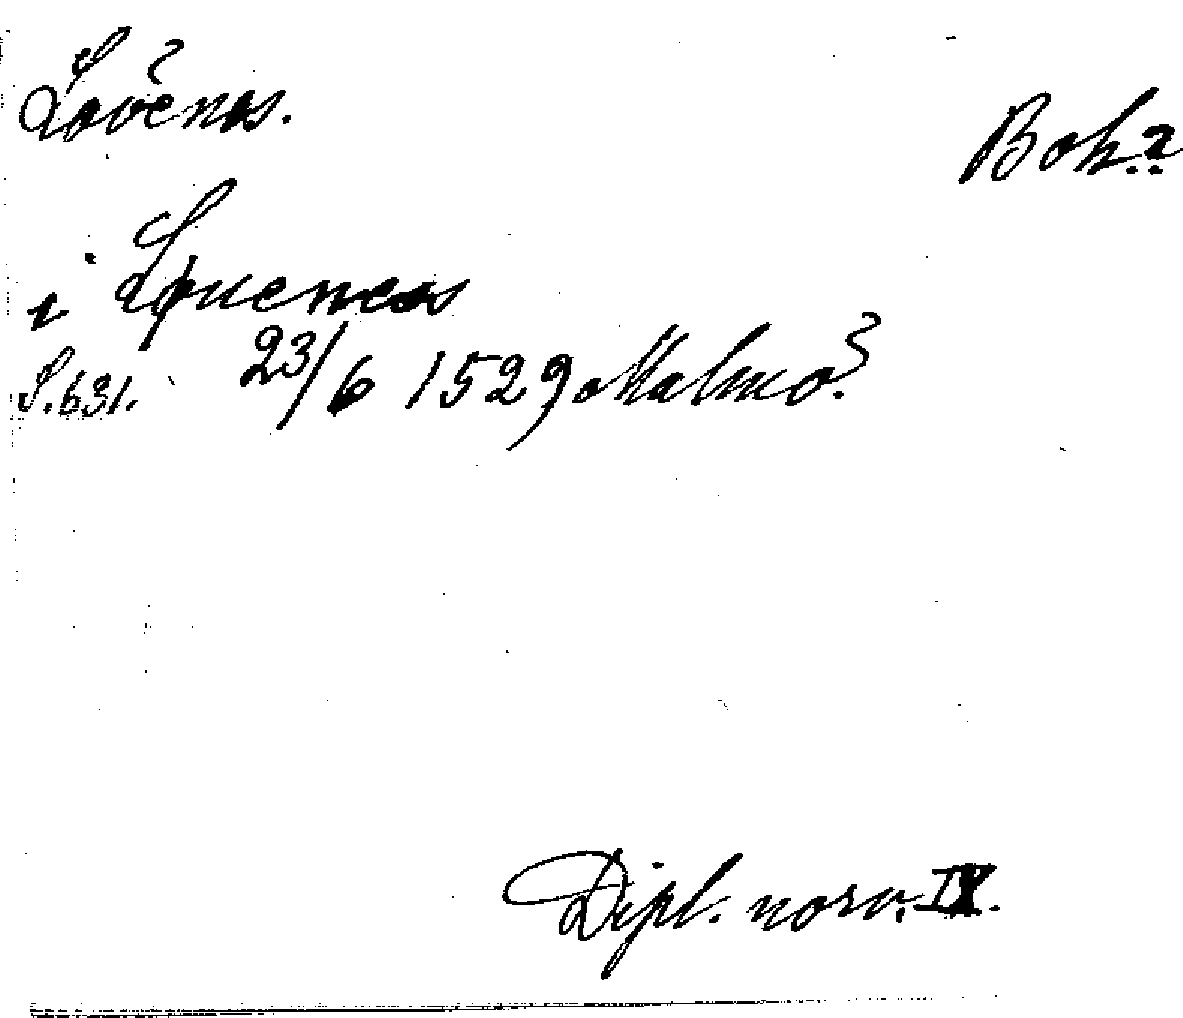 Lövenäs.
Boh.?
i Løuenes
S. 631. 23/6 1529 Malmö.
Dipl. norv. IX.